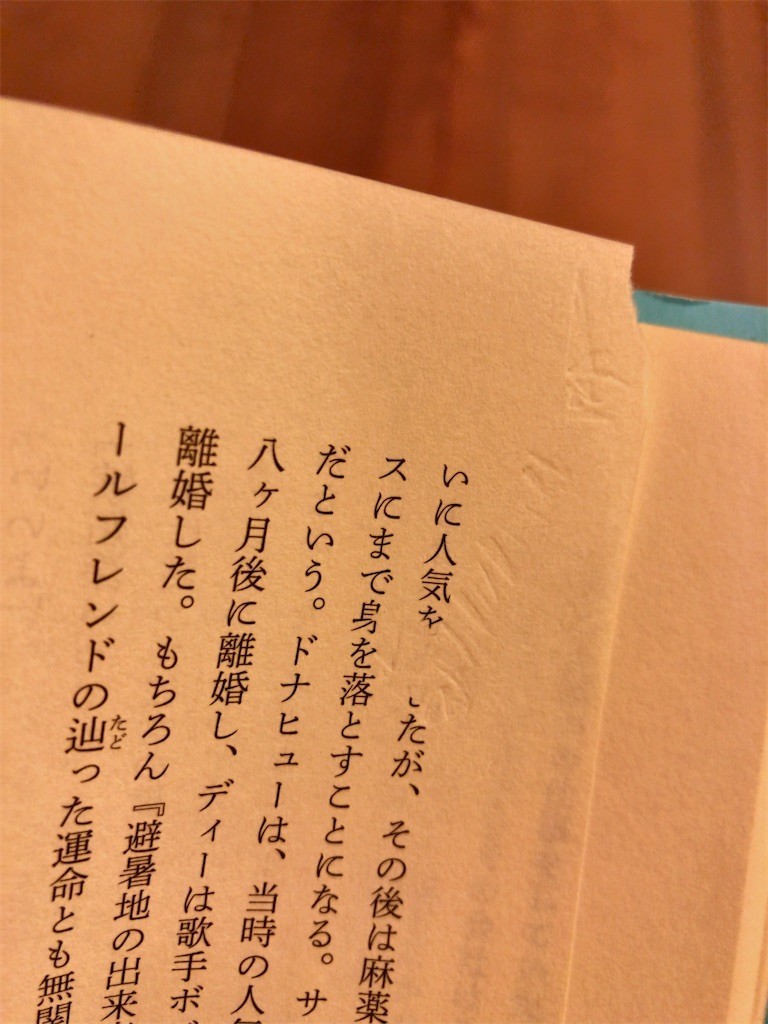 いに人気を したが、その後は麻薬
スにまで身を落とすことになる。サ
だという。ドナヒューは、当時の人気
八ヶ月後に離婚し、ディーは歌手ボ
離婚した。もちろん『避暑地の出来
ールフレンドの辿った運命とも無関
たど